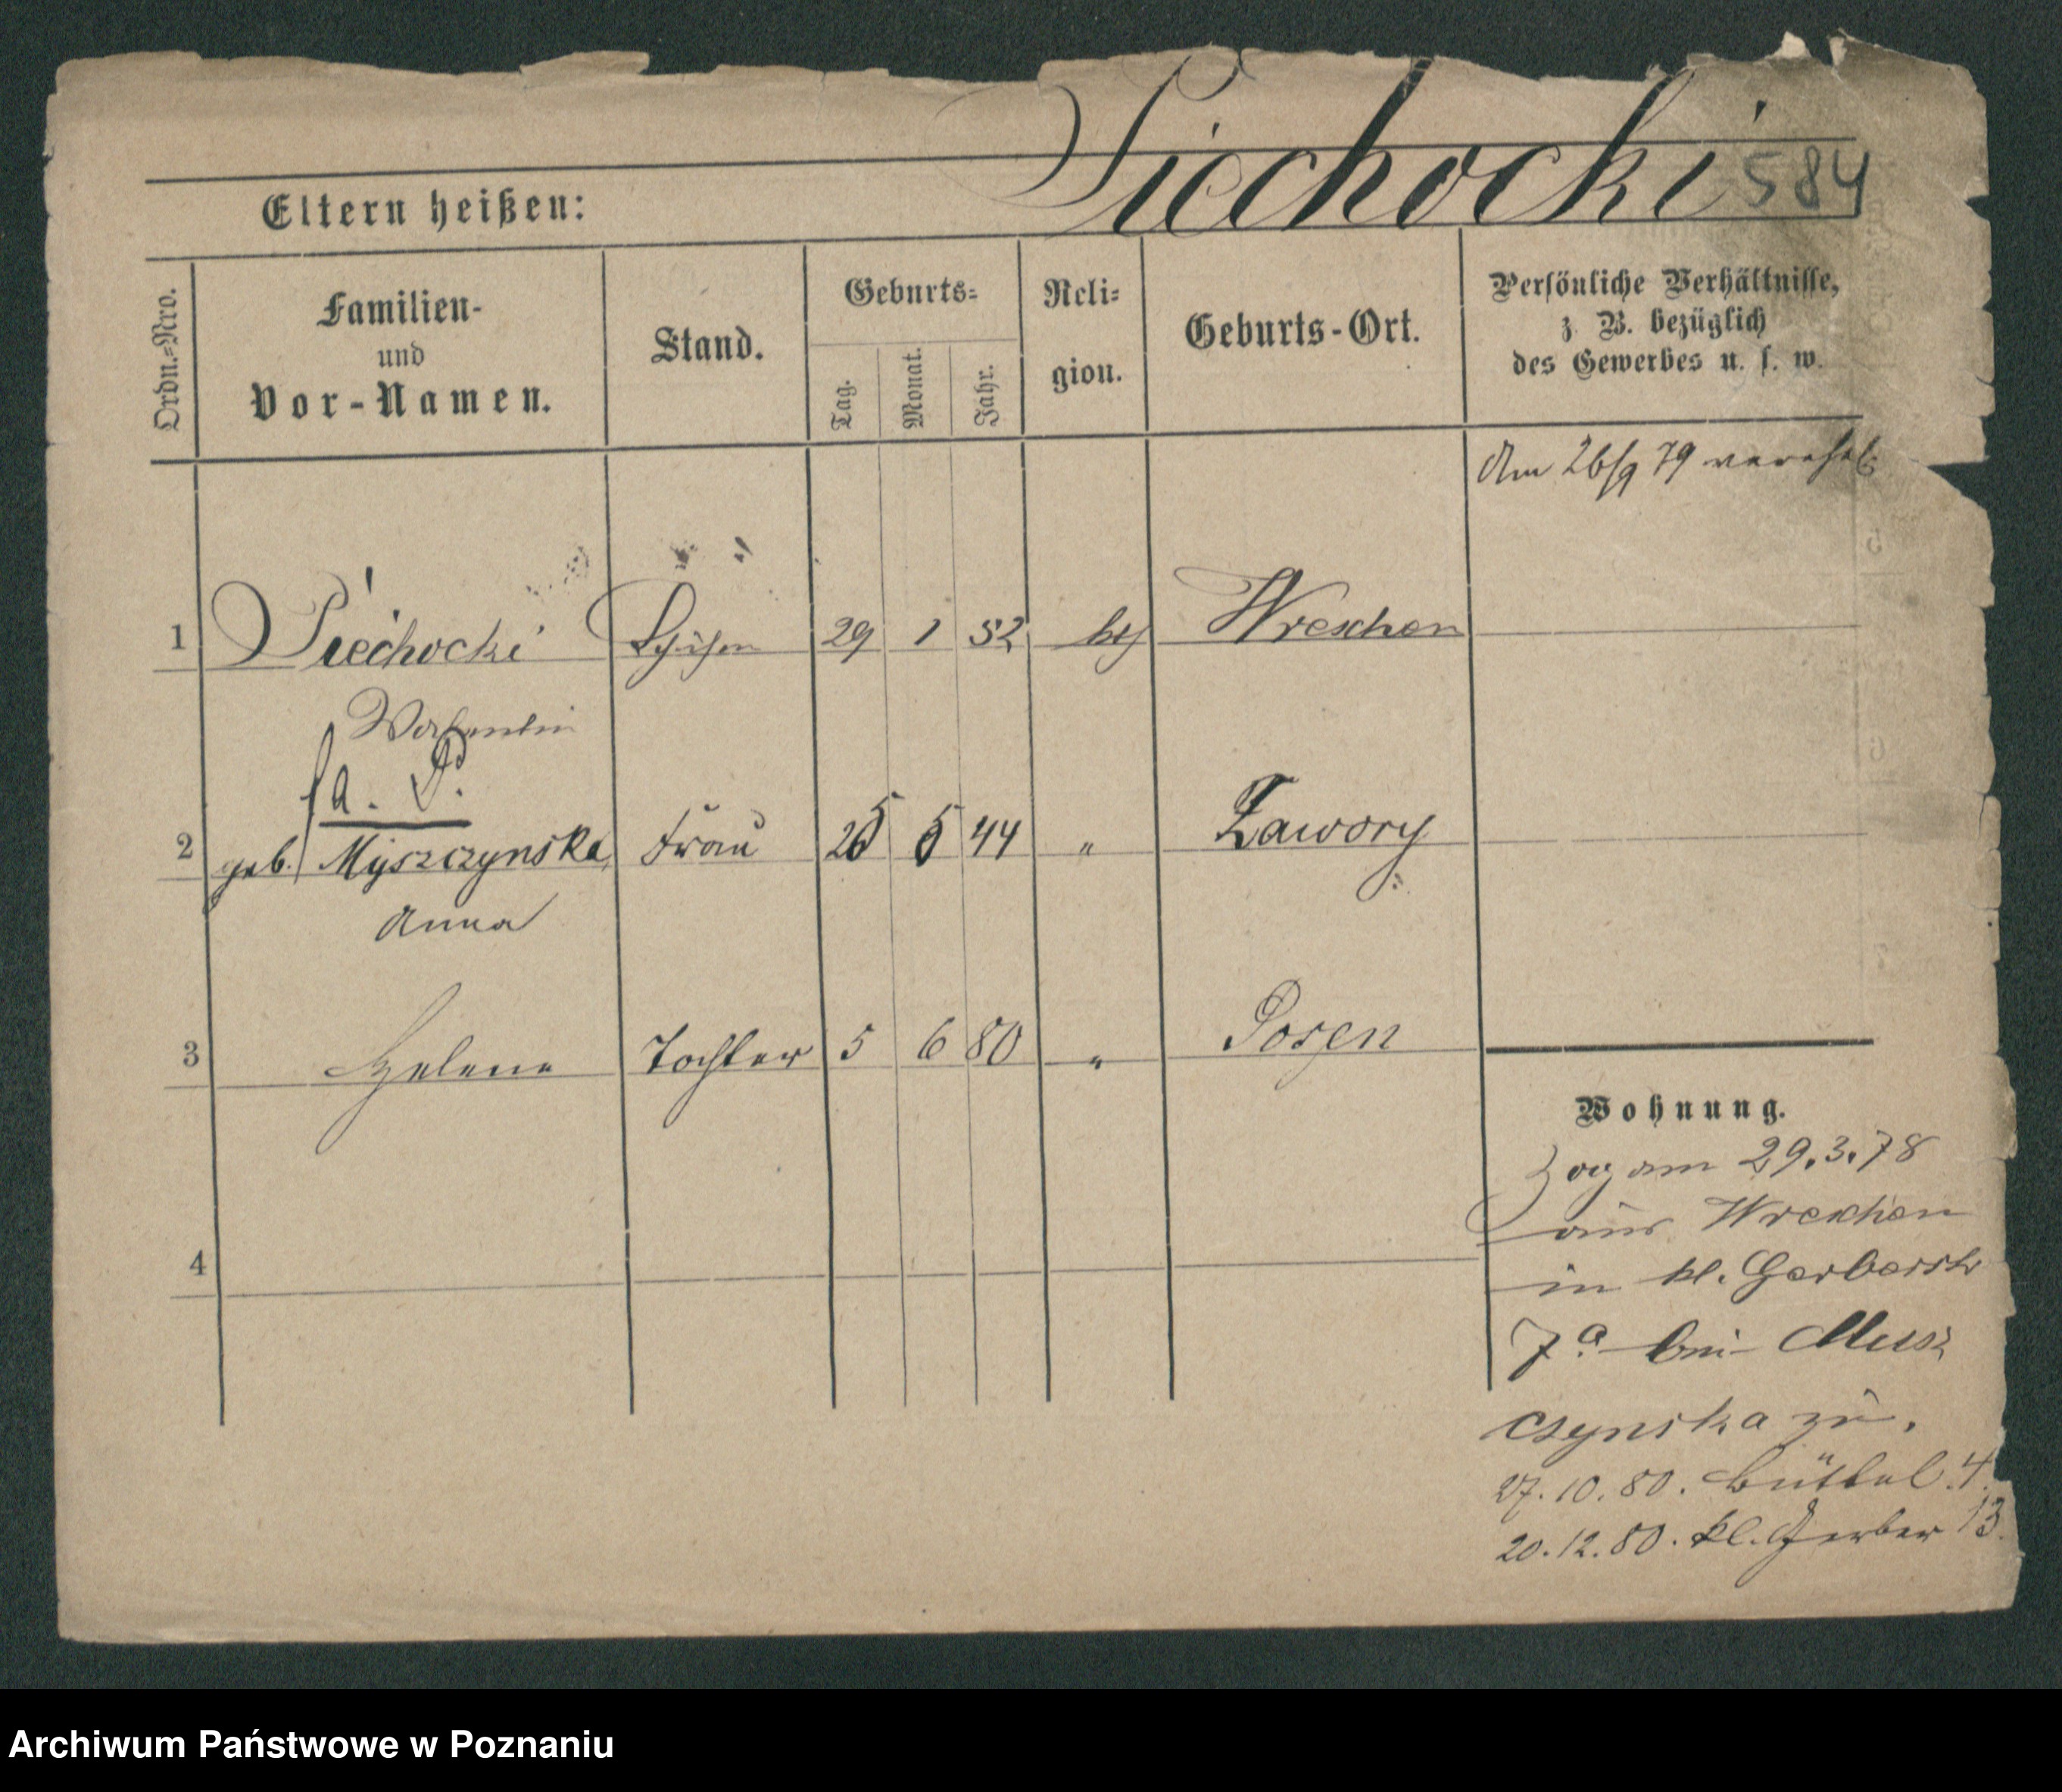 Piechocki 584
Eltern heißen:
Ordn.=Nro.
Familien-
und
Vor-Namen.
Stand.
Geburts=
Tag.
Monat.
Jahr.
Reli=
gion.
Geburts-Ort.
Persönliche Verhältnisse,
z. B. bezüglich
des Gewerbes u. s. w.
Am 26/9 79 vereh
1 Piechocki 29 1 52 kth Wreschen
Valentin
2 geb. Myszczynska Frau 25 5 44 " Zawory
Anna
3 Helene Tochter 5 6 80 " Posen
4
Wohnung.
Zog am 29.3.78
aus Wreschen
in kl. Gerberstr
7a bei Musz
czynska zu.
27.10.80. Büttel 4.
20.12.80. kl. Gerber 13.
Archiwum Państwowe w Poznaniu